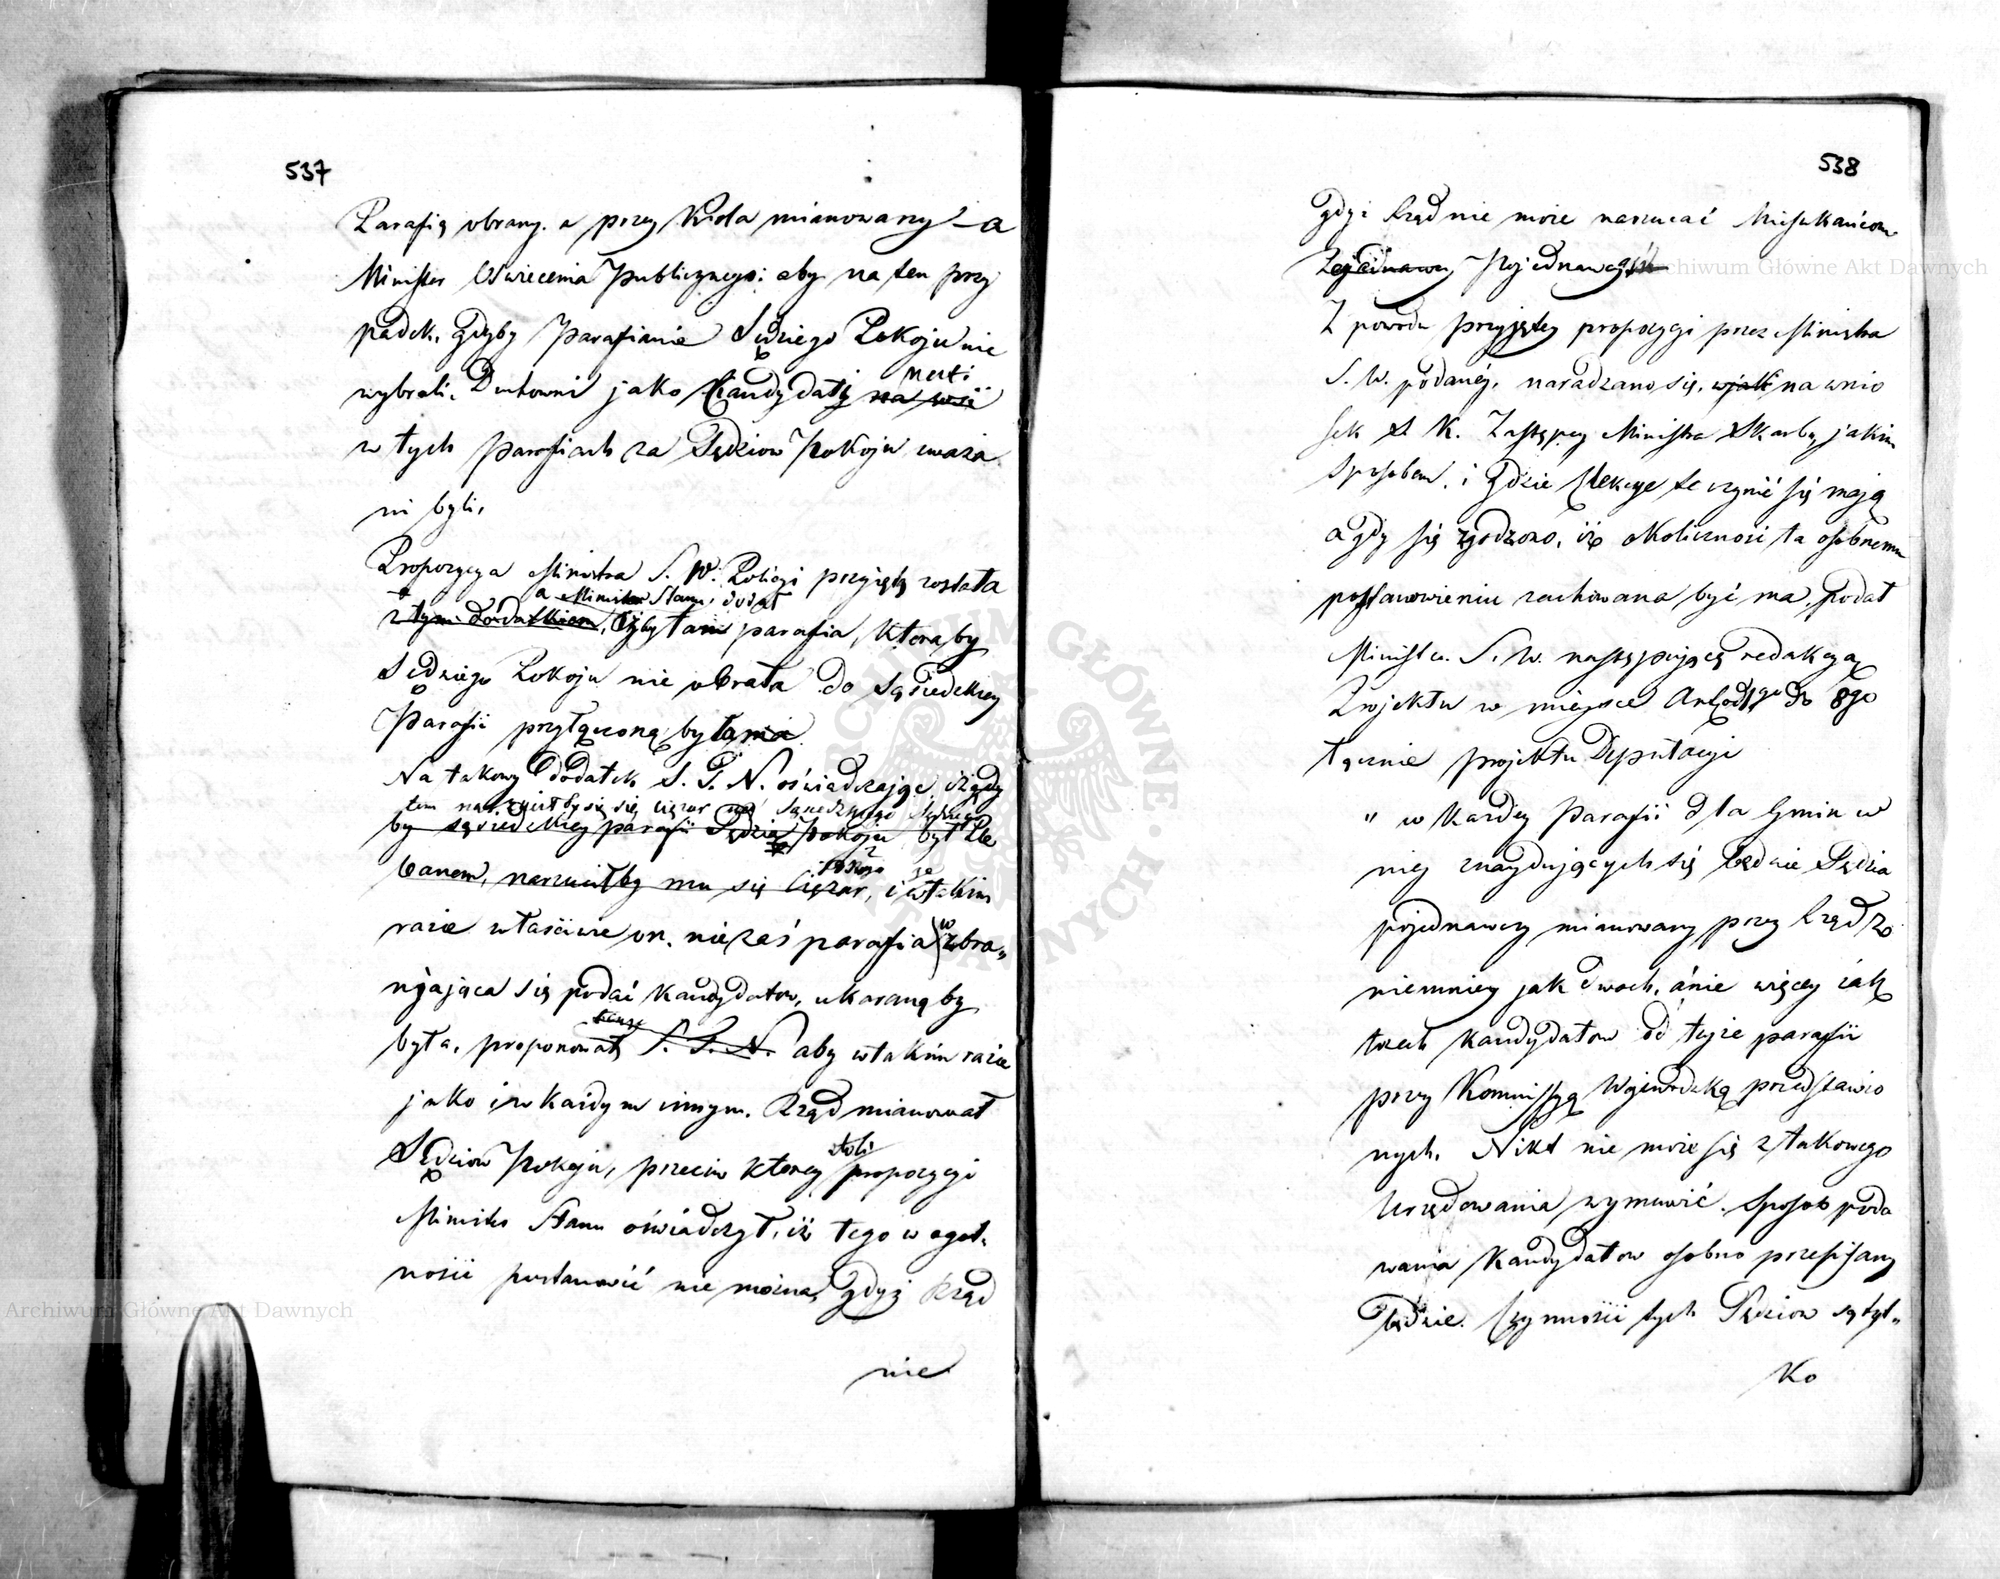 537
Parafią obrany. a przez Króla mianowany – a
Minister Oświecenia Publicznego: aby na ten przy
padek, gdyby Parafianie Sędziego Pokoju nie
wybrali, Duchowni jako Kandydaci na wsi
w tych Parafiach za Sędziow Pokoju uważa
ni byli,
Propozycya Ministra S. W. Policyi przyięta została
a Minister Stanu, dodał
z tym dodatkiem, iżby tam parafia, ktoraby
Sędziego Pokoju nie obrała do sąsiedzkiey
Parafii przyłączoną była
Na takowy Dodatek S. P. N. oświadczając, iż gdy
tem narzuciłby się ciężar na Sąsiedzkiego Sędziego
by sąsiedzkiey parafii Sędzią Pokoju był Ple
banem, narzuciłby mu się ciężar, i w takim
razie właściwie on. nie zaś parafia wzbra„
niająca się podać kandydatow, ukaraną by
była, proponował S. P. N. aby w takim razie
jako i w każdym innym. Rząd mianował
Sędziow Pokoju, przeciw ktorey propozycyi
Minister Stanu oświadczył, iż tego w ogol„
ności postanowić nie można, gdyż Rząd
nie
538
gdyż Rząd nie może narzucać Mieszkańcom
Pojednawcy Pojednawczych
Z powodu przyjętey propozycyi przez Ministra
S. W. podanéy, naradzano się, na wnio
sek S. K. Zastępcy Ministra Skarbu jakim
sposobem, i gdzie Elekcye te czynić się mają
a gdy się zgodzono, iż okoliczność ta osobnemu
postanowieniu zachowana być ma, podał
Minister S. W. następującą redakcyą
Projektu w miejsce Art. od 1go do 8go
łącznie projektu Deputacyi
„ w każdey Parafii dla Gmin w
niey znayduiących się będzie Sędzia
pojednawczy mianowany przez Rząd z
niemniey jak dwoch, a nie więcey iak
trzech kandydatow od teyże parafii
przez Kommissyą Wojewodzką przedstawio
nych. Nikt nie może się z takowego
Urzędowania wymowić. Sposob poda
wania Kandydatow osobno przepisany
będzie. Czynności tych Sędziow są tyl„
ko